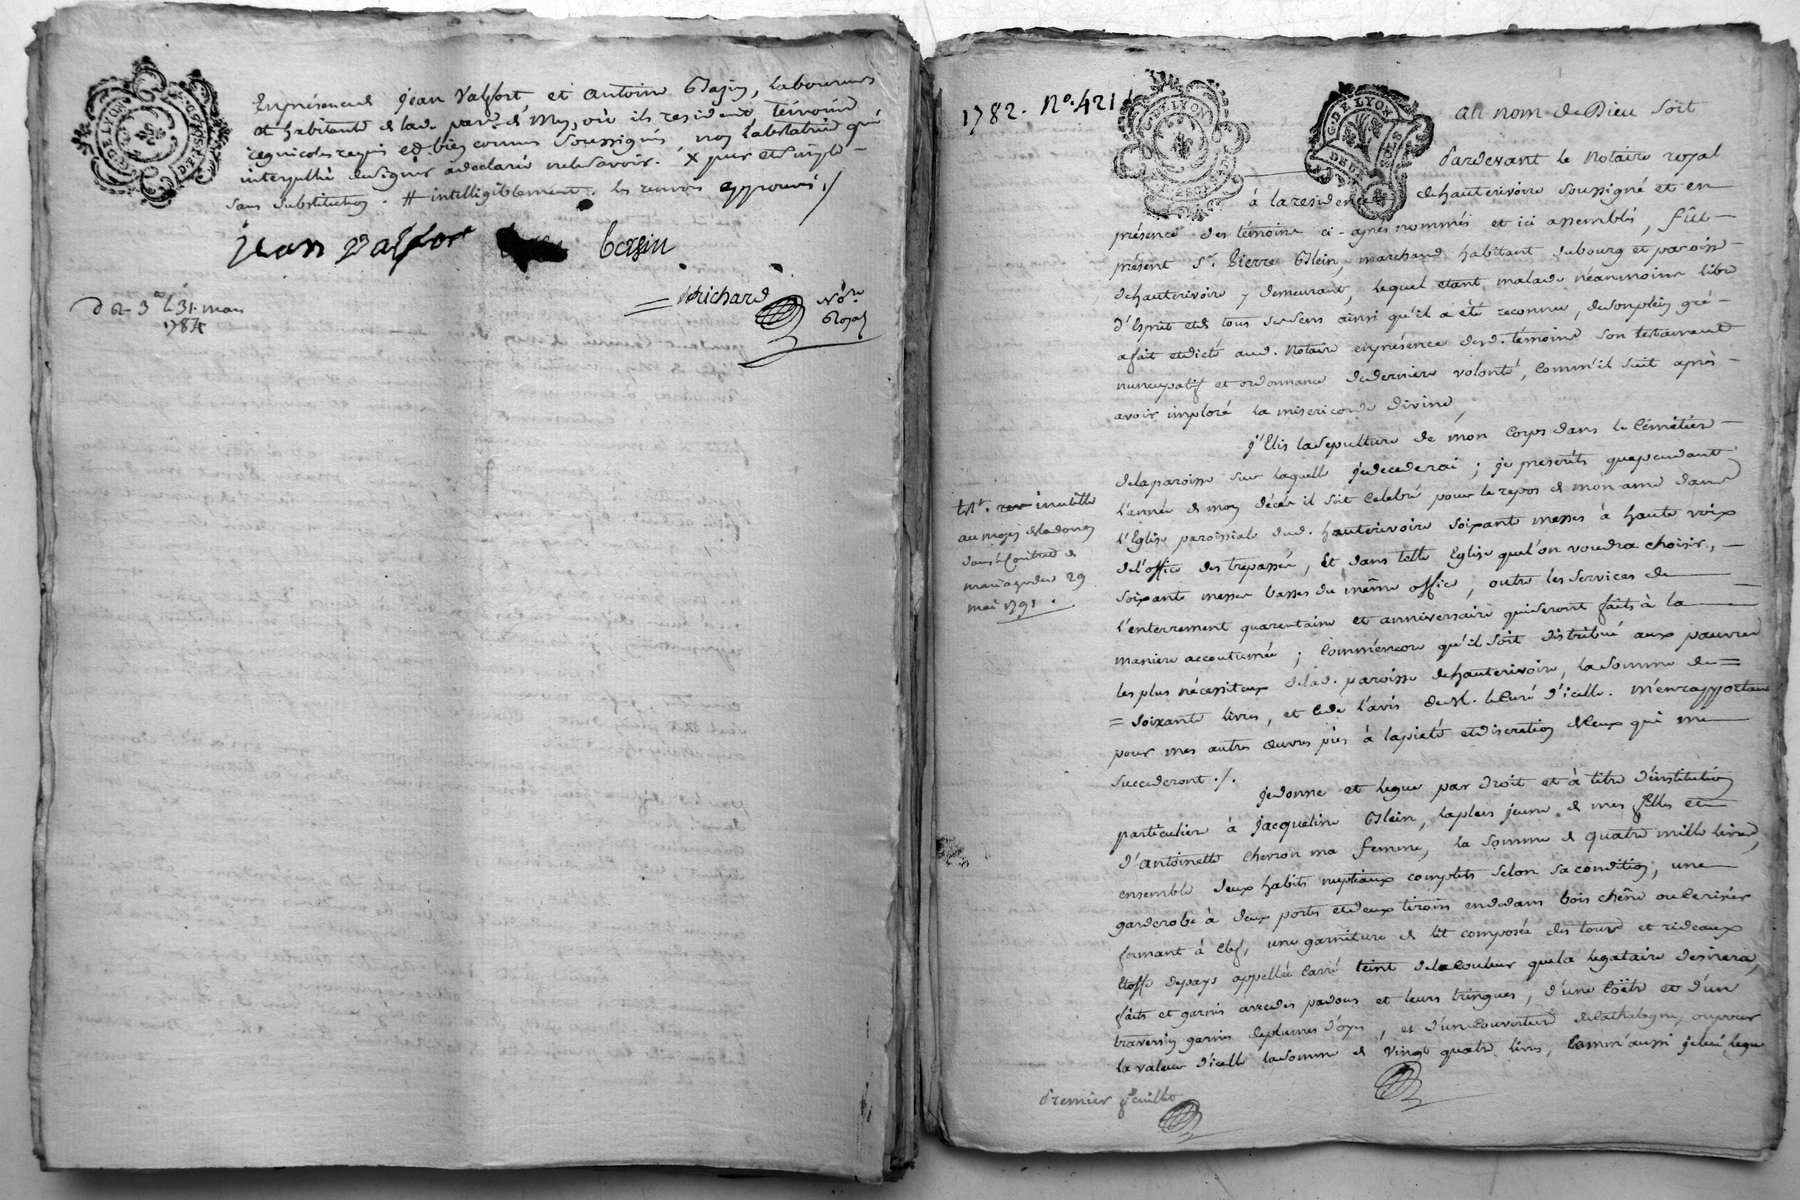 En présence de Jean Valfort et Antoine Blajin, laboureurs
et habitants de lad. par. de Mes, où ils resident témoins
requis et bien connus soussignés, non la testatrice qui
interpellée de signer a déclaré ne le savoir. X pur et simple -
sans substitution. # intelligiblement. les renvois approuvés ./
Jean Valfort
bersin
Richard Nore
Royal
le 31. mars
1784
G. DE LYON
1782. No. 421
G. DE LYON
G. DE LYON
DEUX SOLS
Au nom de Dieu soit
Pardevant le Notaire royal
à la residence de hauterivoire soussigné et en
présence des témoins ci-après nommés et ici assemblés, fût
présent Sr. Pierre Blein, marchand habitant du bourg et paroisse
de hauterivoire y demeurant, lequel etant malade néanmoins libre
d'Esprit et de tous ses sens ainsi qu'il a été reconnu, de son plein gré
a fait et dicté aud. Notaire en présence desd. témoins son testament
nuncupatif et ordonnance de derniere volonté, comm'il suit après
avoir imploré la misericorde divine,
j'Elis la sepulture de mon corps dans le Cémétiere
de la paroisse sur laquelle je decederai ; je prescrits que pendant
l'année de mon décés il soit celebré pour le repos de mon ame dans
l'Eglise paroissiale dud. hauterivoire soixante messes à haute voix
de l'office des trepassés, Et dans telle Eglise que l'on voudra choisir,
soixante messes basses du même office, outre les services de
l'enterrement quarantaine et anniversaire qui seront faits à la
maniere accoutumée ; comm'encore qu'il soit distribué aux pauvres
les plus nécessiteux de lad. paroisse de hauterivoire, la somme de =
= soixante livres, et ce de l'avis de M. le Curé d'icelle. m'en rapportant
pour mes autres œuvres pies à la pieté et discretion de ceux qui me
succederont ./.
je donne et legue par droit et à titre d'institution
particuliere à Jacqueline Blein, la plus jeune de mes filles et
d'Antoinette Chevron ma femme, la somme de quatre mille livres,
ensemble deux habits nuptiaux complets selon sa condition, une
garderobe à deux portes et deux tiroirs en dedans bois chêne ou cerisier
fermant à clef, une garniture de lit composée des tours et rideaux
Etoffe de pays appellée Carré teint de la couleur que la legataire desirera,
faits et garnis avec des padous et leurs tringues, d'une coëtre et d'un
traversin garnis de plumes d'oyes, et d'un couverture de cathalogne, ou pour
la valeur d'icelle la somme de vingt quatre livres, Comm'aussi je lui legue
inutille
au moyen de la donon
dans le Contrat de
mariage du 29
mai 1791.
Premier feuillet